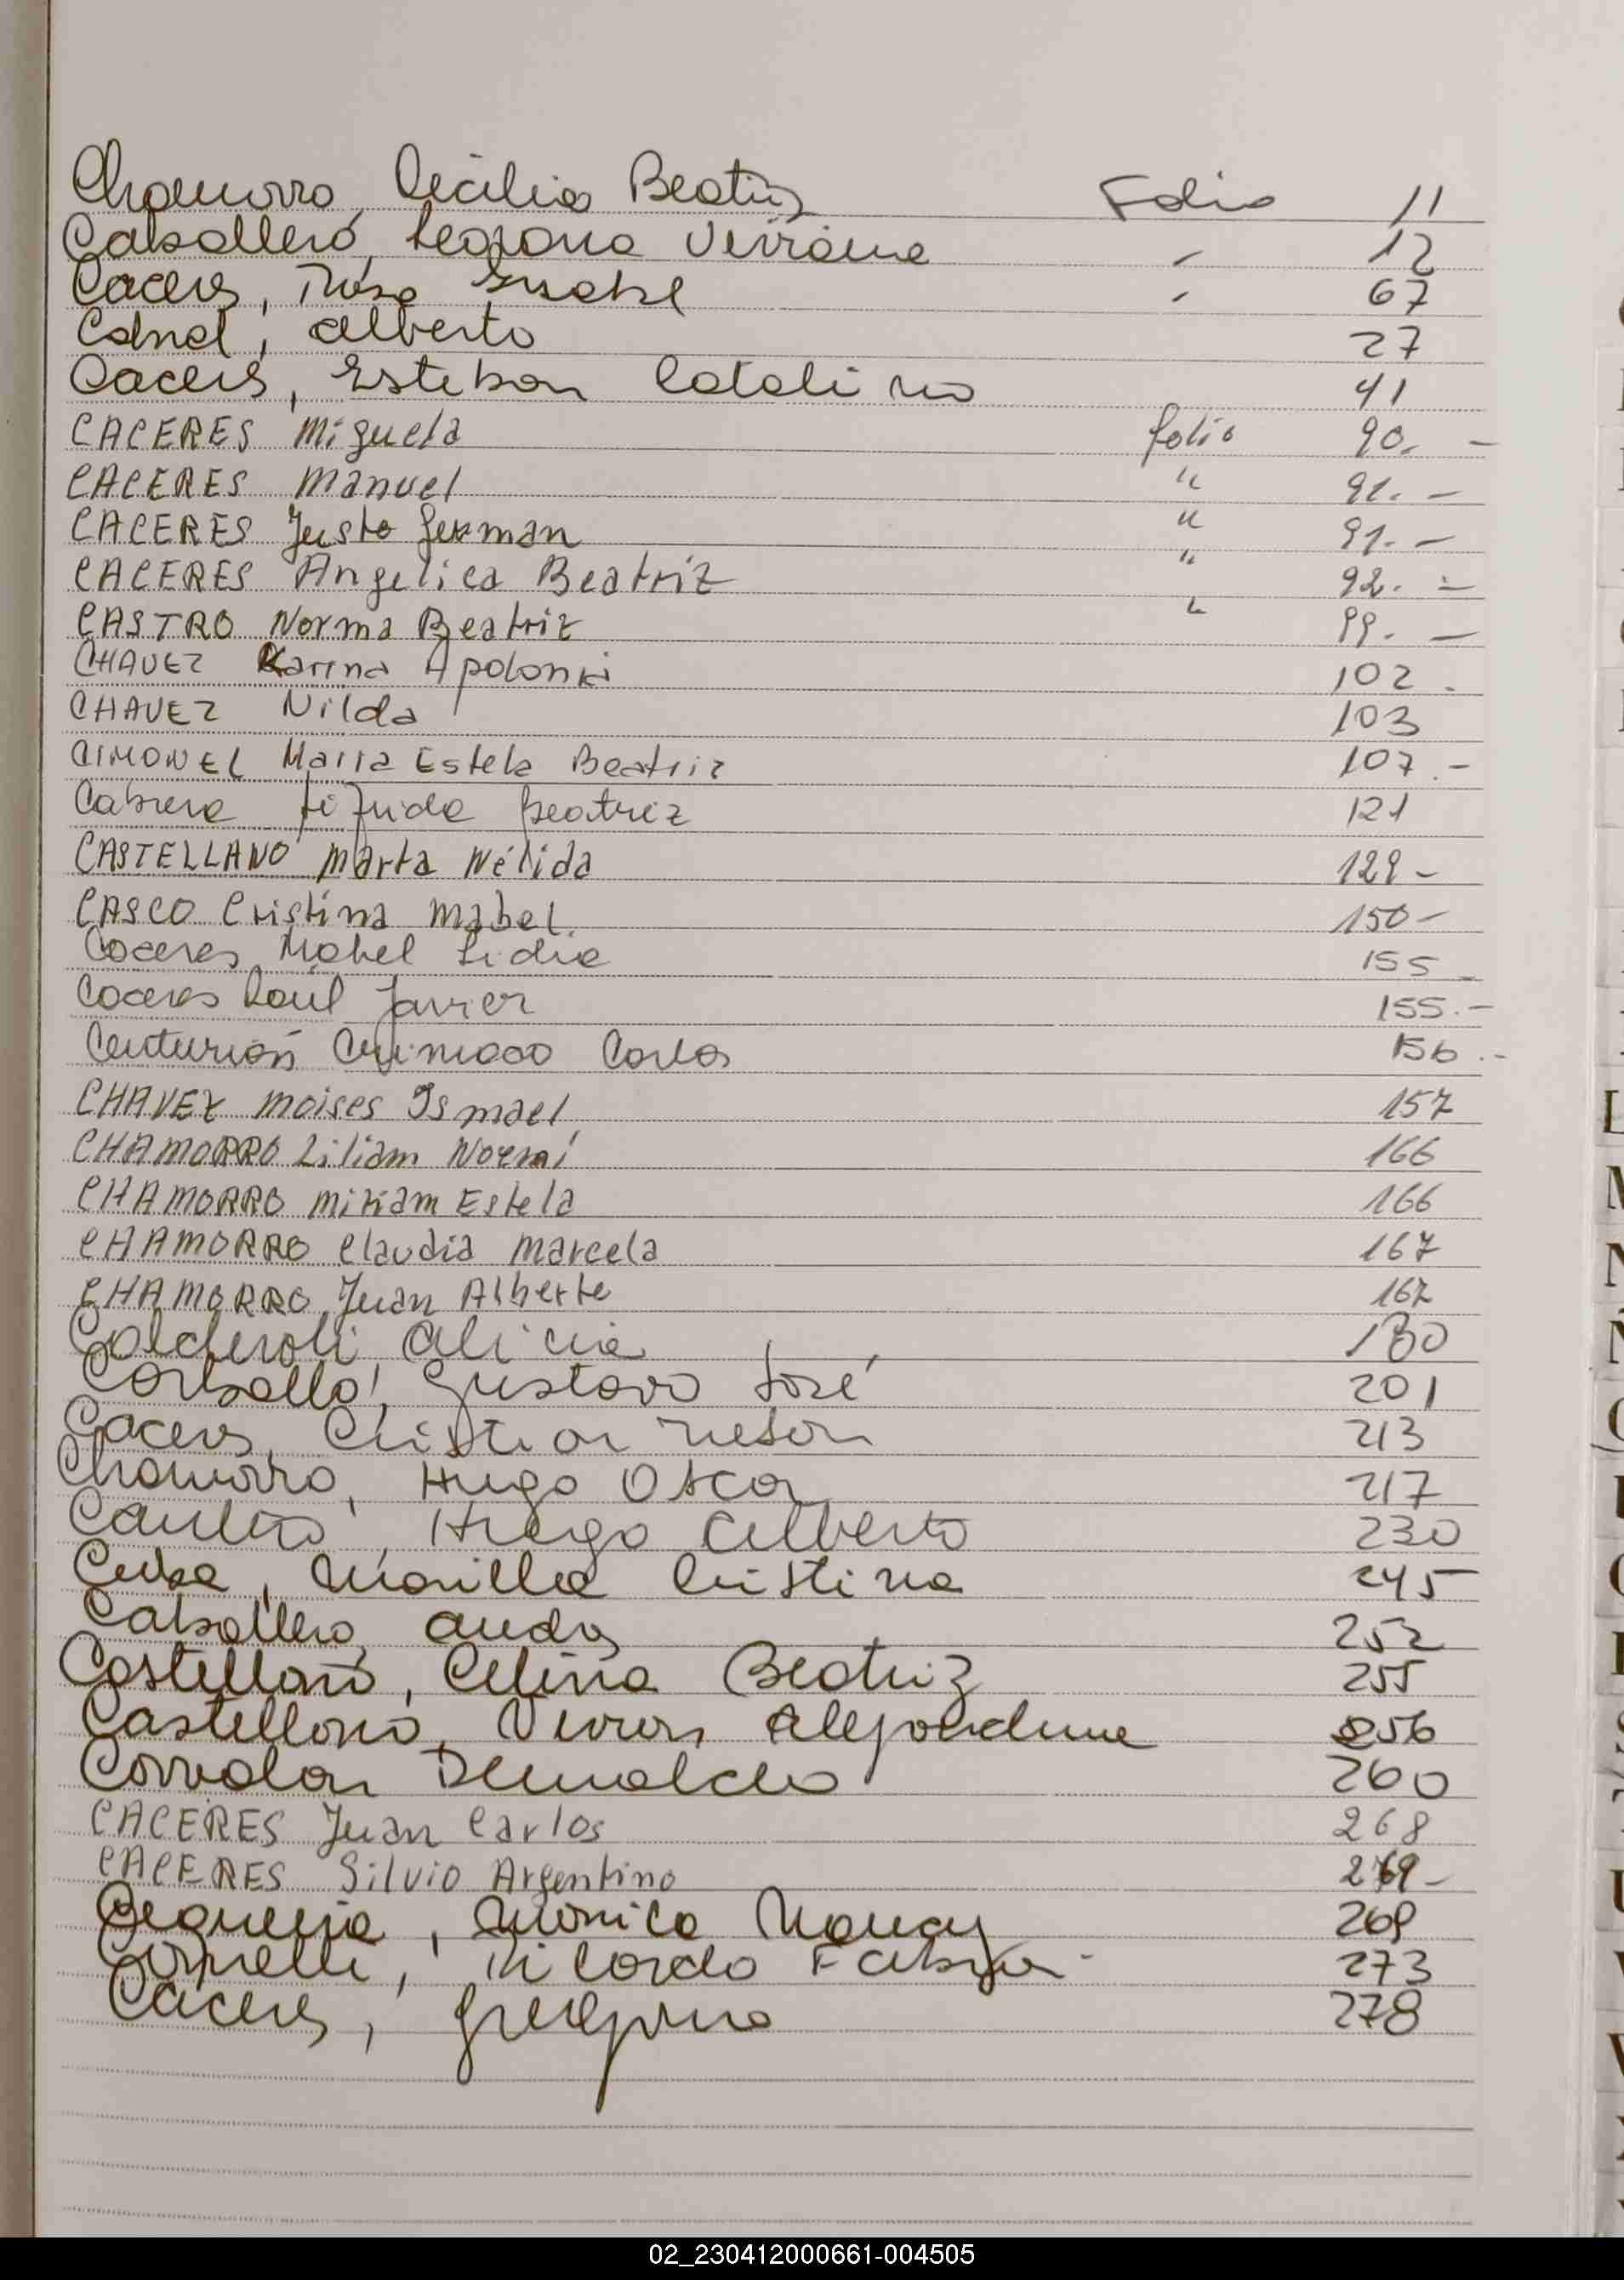 Chamorro, Cecilia Beatriz Folio 11
Caballero, Leonona Viviana " 12
Caceres, Rosa Isabel " 67
alberto 27
Caceres, Esteban Catalino 41
CACERES Miguela folio 90.-
CACERES Manuel " 91.-
CACERES Justo German " 91.-
CACERES Angelica Beatriz " 92.-
CASTRO Norma Beatriz " 99.-
CHAVEZ Karina Apolonia 102.
CHAVEZ Nilda 103
CIMONEL Maria Estela Beatriz 107.-
Cabrera Beatriz 121
CASTELLANO Marta Nélida 129-
CASCO Cristina Mabel. 150-
Caceres Mabel Lidia 155-
Caceres Raúl Javier 155.-
Centurión Carlos 156.-
CHAVEZ Moises Ismael 157
CHAMORRO Liliam Noemí 166
CHAMORRO Miriam Estela 166
CHAMORRO Claudia Marcela 167
CHAMORRO Juan Alberto 167
Calderoli Alicia 180
Carballo, Gustavo José 201
Caceres, Cristian 213
Chamorro, Hugo Oscar 217
Hugo Alberto 230
Cristina 245
Caballero, 252
Castellano, Celina Beatriz 255
Castellano, Vivian Alejandrina 256
Corvalan 260
CACERES Juan Carlos 268
CACERES Silvio Argentino 269-
Monica Nancy 269
Ricardo Fabian - 273
Caceres, 278
02_230412000661-004505